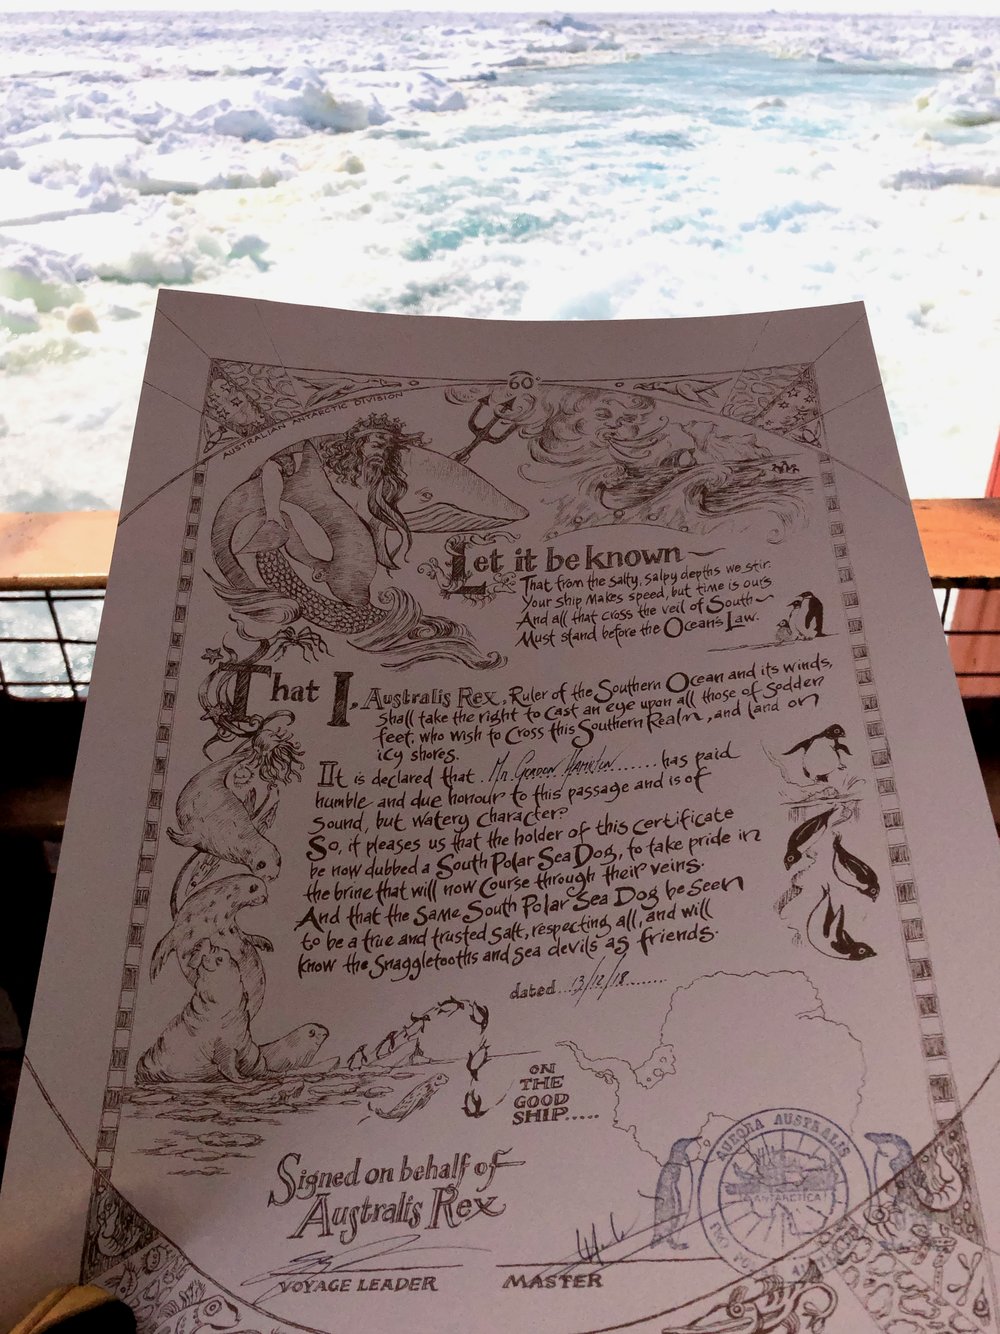 60°
AUSTRALIAN ANTARCTIC DIVISION
Let it be known
That from the salty, salpy depths we stir.
Your ship makes speed, but time is ours
And all that cross the veil of South
Must stand before the Ocean's Law.
That I, Australis Rex, Ruler of the Southern Ocean and its winds,
shall take the right to cast an eye upon all those of sodden
feet, who wish to cross this Southern Realm, and land on
icy shores.
It is declared that Mr. Gordon Hamilton has paid
humble and due honour to this passage and is of
sound, but watery character.
So, it pleases us that the holder of this certificate
be now dubbed a South Polar Sea Dog, to take pride in
the brine that will now course through their veins.
And that the same South Polar Sea Dog be seen
to be a true and trusted salt, respecting all, and will
know the snaggletooths and sea devils as friends.
dated...13/12/18.......
ON
THE
GOOD
SHIP.....
AURORA AUSTRALIS
ANTARCTICA
Signed on behalf of
Australis Rex
VOYAGE LEADER
MASTER